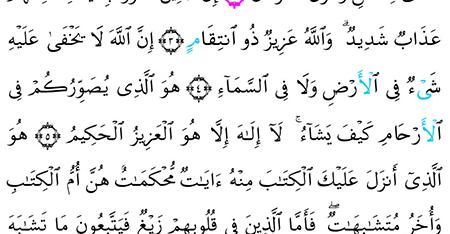 عَذَابٌ شَدِيدٌ ۗ وَٱللَّهُ عَزِيزٌ ذُو ٱنتِقَامٍ ﴿٣﴾ إِنَّ ٱللَّهَ لَا يَخْفَىٰ عَلَيْهِ
شَىْءٌ فِى ٱلْأَرْضِ وَلَا فِى ٱلسَّمَآءِ ﴿٤﴾ هُوَ ٱلَّذِى يُصَوِّرُكُمْ فِى
ٱلْأَرْحَامِ كَيْفَ يَشَآءُ ۚ لَآ إِلَـٰهَ إِلَّا هُوَ ٱلْعَزِيزُ ٱلْحَكِيمُ ﴿٥﴾ هُوَ
ٱلَّذِىٓ أَنزَلَ عَلَيْكَ ٱلْكِتَـٰبَ مِنْهُ ءَايَـٰتٌ مُّحْكَمَـٰتٌ هُنَّ أُمُّ ٱلْكِتَـٰبِ
وَأُخَرُ مُتَشَـٰبِهَـٰتٌ ۖ فَأَمَّا ٱلَّذِينَ فِى قُلُوبِهِمْ زَيْغٌ فَيَتَّبِعُونَ مَا تَشَـٰبَهَ